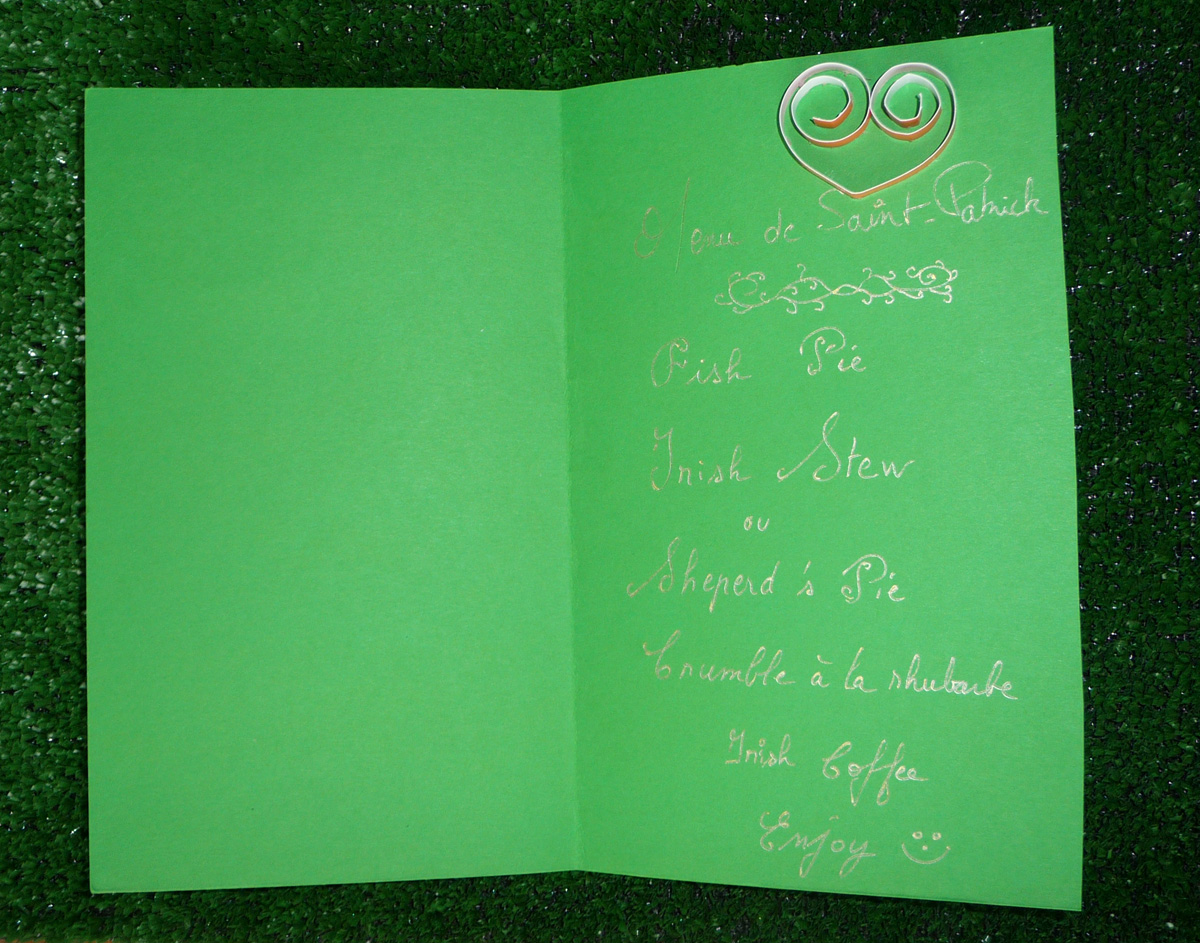 Menu de Saint-Patrick
Fish Pie
Irish Stew
ou
Sheperd's Pie
Crumble à la rhubarbe
Irish Coffee
Enjoy